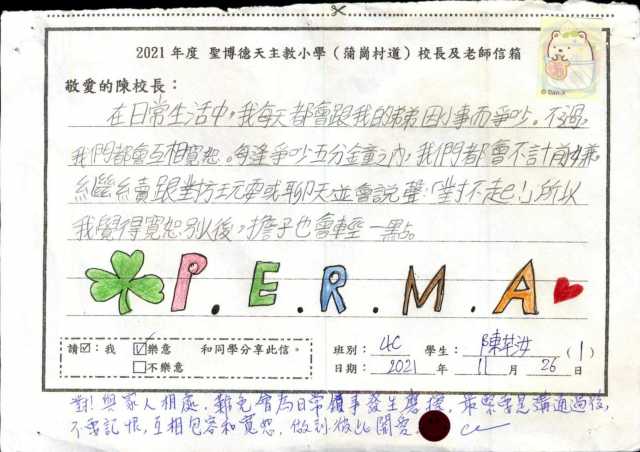 2021 年度 聖博德天主教小學（蒲崗村道）校長及老師信箱
敬愛的陳校長：
在日常生活中，我每天都會跟我的弟弟因小事而爭吵。不過，
我們都會互相寬恕。每逢爭吵五分鐘之內，我們都會不計前嫌，
繼續跟對方玩耍或聊天並會說聲：「對不起！」所以
我覺得寬恕別人後，擔子也會輕一點。
P.E.R.M.A
請☑：我 ☑樂意 和同學分享此信。
□不樂意
班別： 4C 學生： 陳 (1)
日期： 2021 年 11 月 26 日
對！與家人相處，難免會為日常瑣事發生磨擦，最緊要是溝通過後，
不要記恨，互相包容和寬恕，做到彼此關愛。
© San-X